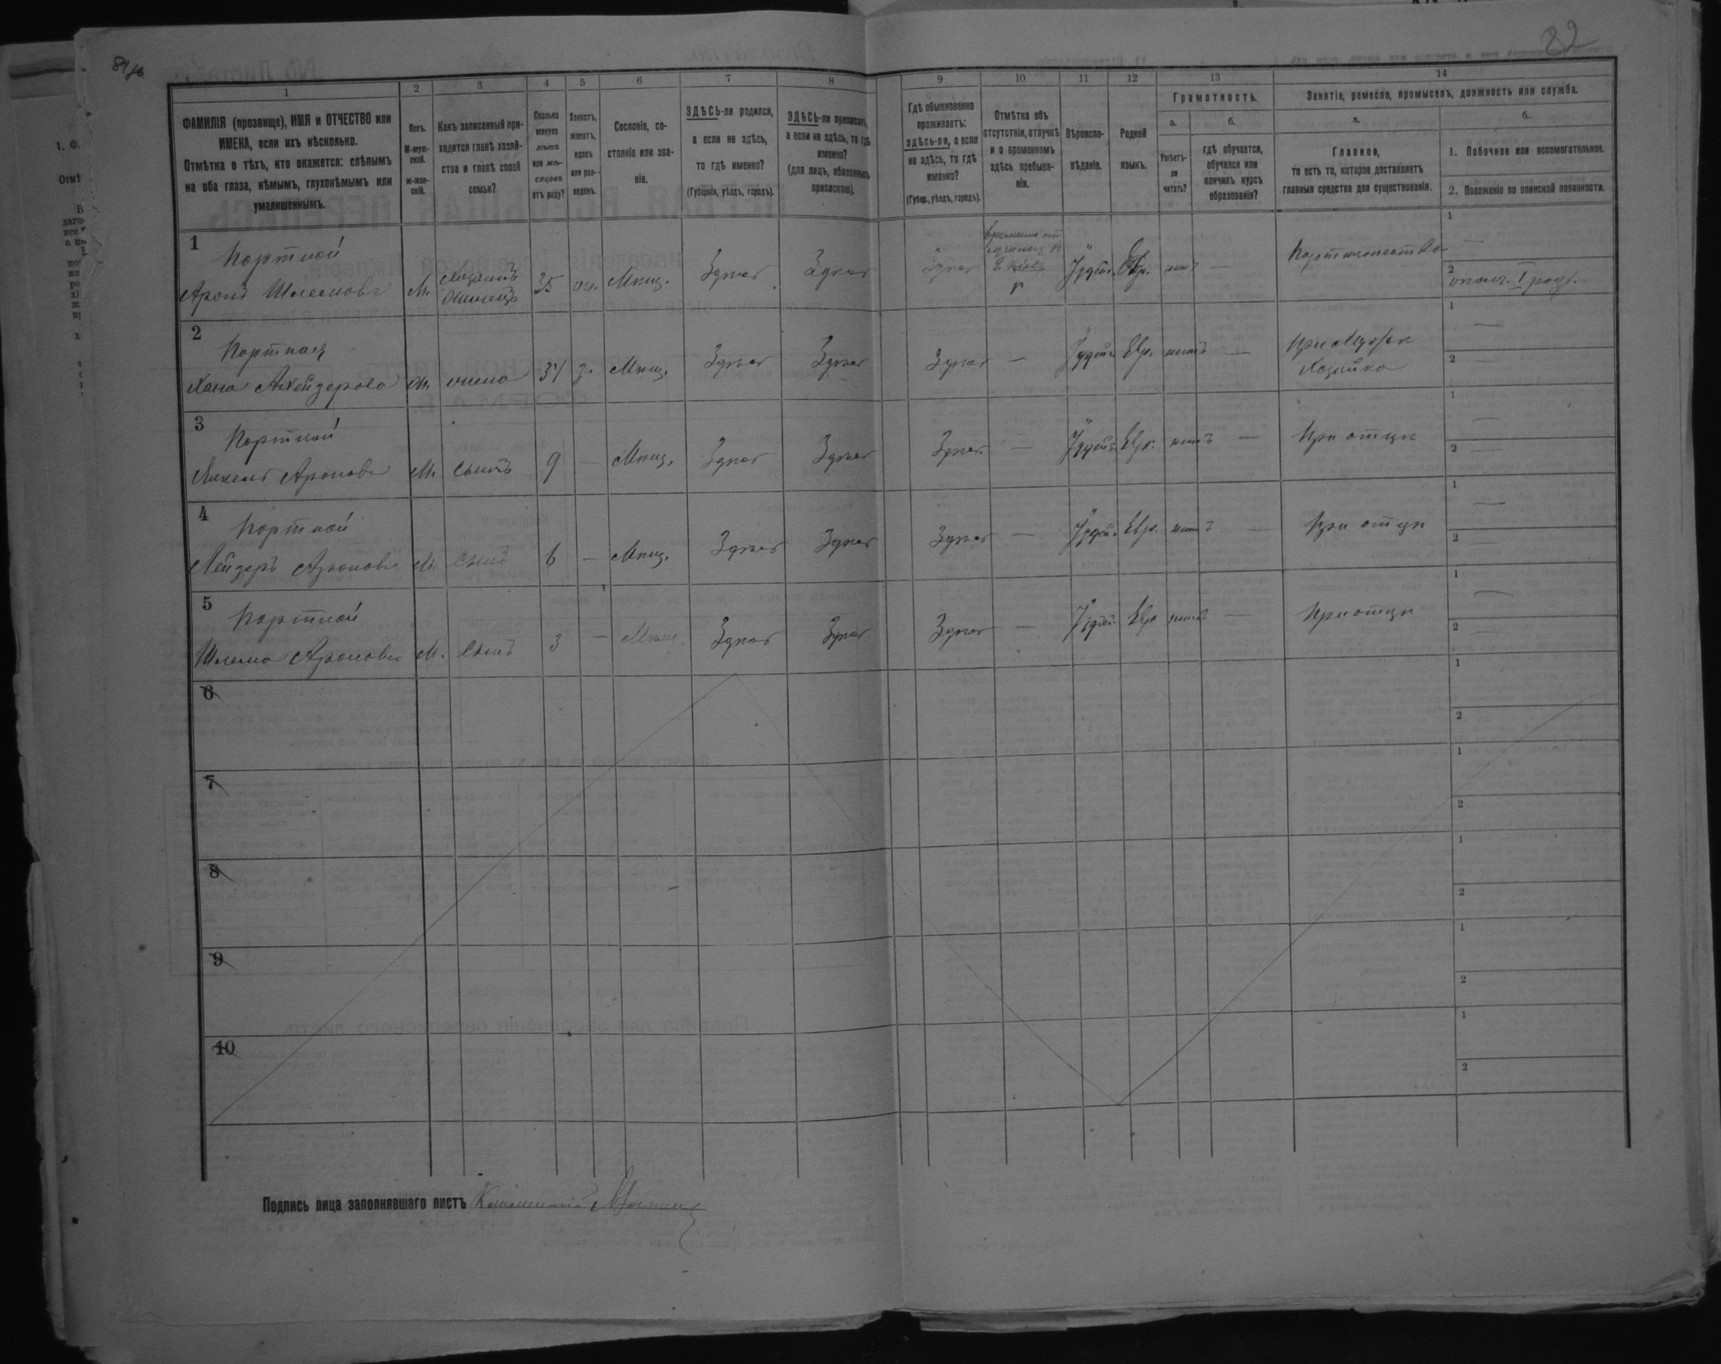 82
1
2
3
4
5
6
7
8
9
10
11
12
13
14
ФАМИЛІЯ (прозвище), ИМЯ и ОТЧЕСТВО или
ИМЕНА, если ихъ нѣсколько.
Отмѣтка о тѣхъ, кто окажется: слѣпымъ
на оба глаза, нѣмымъ, глухонѣмымъ или
умалишеннымъ.
Полъ.
М-муж-
ской.
ж-жен-
скій.
Какъ записанный при-
ходится главѣ хозяй-
ства и главѣ своей
семьи?
Сколько
минуло
лѣтъ
или мѣ-
сяцевъ
отъ роду?
Холостъ,
женатъ,
вдовъ
или раз-
веденъ.
Сословіе, со-
стояніе или зва-
ніе.
ЗДѢСЬ-ли родился,
а если не здѣсь,
то гдѣ именно?
(Губернія, уѣздъ, городъ).
ЗДѢСЬ-ли приписанъ,
а если не здѣсь, то гдѣ
именно?
(для лицъ, обязанныхъ
припискою).
Гдѣ обыкновенно
проживаетъ:
здѣсь-ли, а если
не здѣсь, то гдѣ
именно?
(Губер., уѣздъ, городъ).
Отмѣтка объ
отсутствіи, отлучкѣ
и о временномъ
здѣсь пребыва-
ніи.
Вѣроиспо-
вѣданіе.
Родной
языкъ.
Грамотность.
а.
б.
Умѣетъ-
ли
читать?
гдѣ обучается,
обучался или
кончилъ курсъ
образованія?
Занятіе, ремесло, промыселъ, должность или служба.
а.
б.
Главное,
то есть то, которое доставляетъ
главныя средства для существованія.
1. Побочное или вспомогательное.
2. Положеніе по воинской повинности.
1
Портной
Аронъ Шлемовъ М. хозяинъ 35 Мѣщ. Здѣсь Здѣсь Здѣсь Іудей. Евр. нѣтъ — Портняжество
1 —
2
2
Портная
Хана ж. жена Мѣщ. Здѣсь Здѣсь Здѣсь — Іудей. Евр. нѣтъ — При мужѣ
Хозяйка
1 —
2 —
3
Портной
Ароновъ М. сынъ 9 — Мѣщ. Здѣсь Здѣсь Здѣсь — Іудей. Евр. нѣтъ — При отцѣ
1 —
2 —
4
Портной
Лейзеръ Ароновъ М. сынъ 6 — Мѣщ. Здѣсь Здѣсь Здѣсь — Іудей. Евр. нѣтъ — При отцѣ
1 —
2 —
5
Портной
Шлема Ароновъ М. сынъ 3 — Мѣщ. Здѣсь Здѣсь Здѣсь — Іудей. Евр. нѣтъ — При отцѣ
1 —
2 —
6
1
2
7
1
2
8
1
2
9
1
2
10
1
2
Подпись лица заполнявшаго листъ